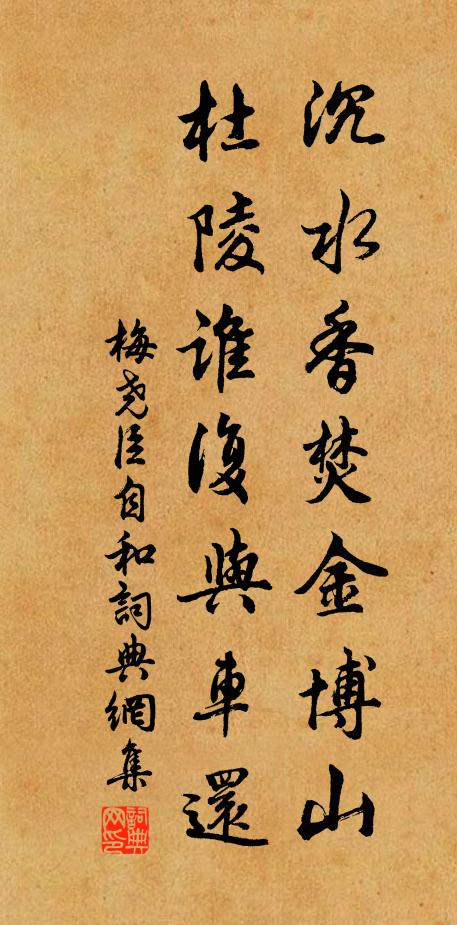 沉水香焚金博山
杜陵誰復與車還
梅尧臣自和詞典網集
詞典網印